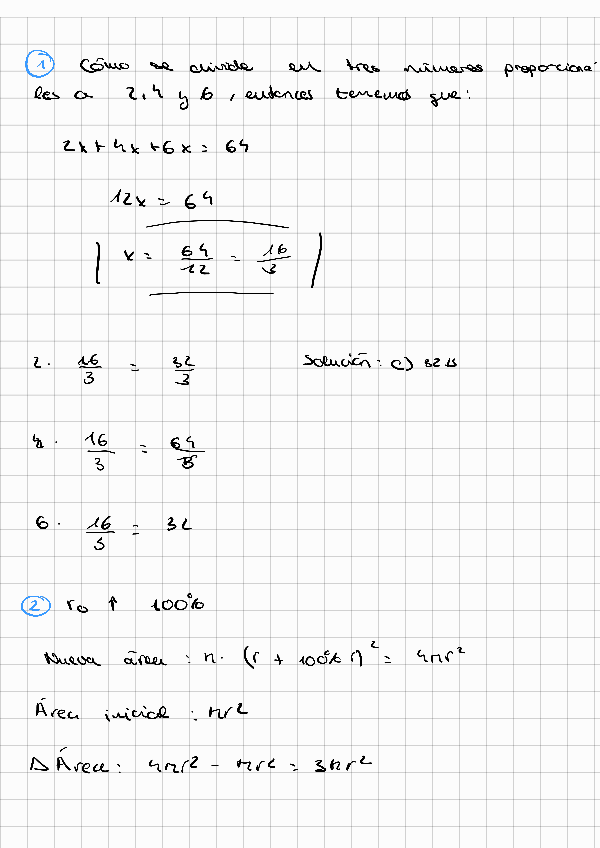 1 Cómo se divide en tres números proporciona
les a 2, 4 y 6, entonces tenemos que:
2x+4x+6x = 64
12x = 64
x = 64/12 = 16/3
2 · 16/3 = 32/3 Solución: c)
4 · 16/3 = 64/3
6 · 16/3 = 32
2 r₀ ↑ 100%
Nueva área : π · (r + 100% r)² = 4πr²
Área inicial : πr²
Δ Área : 4πr² - πr² = 3πr²